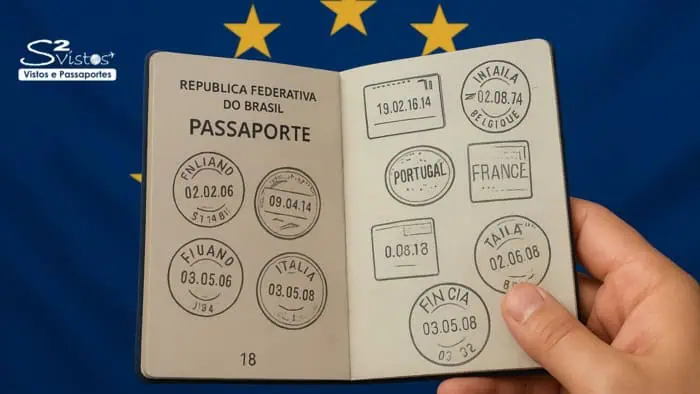 S2
Vistos
Vistos e Passaportes
REPUBLICA FEDERATIVA
DO BRASIL
PASSAPORTE
FNLIAND
02.02.06
09.04.14
FIUANO
03.05.06
J194
ITALIA
03.05.08
18
19.02.16.14
INTAILA
02.08.74
BELGIQUE
PORTUGAL
FRANCE
0.08.18
TAILA
02.06.08
FIN CIA
03.05.08
03 32